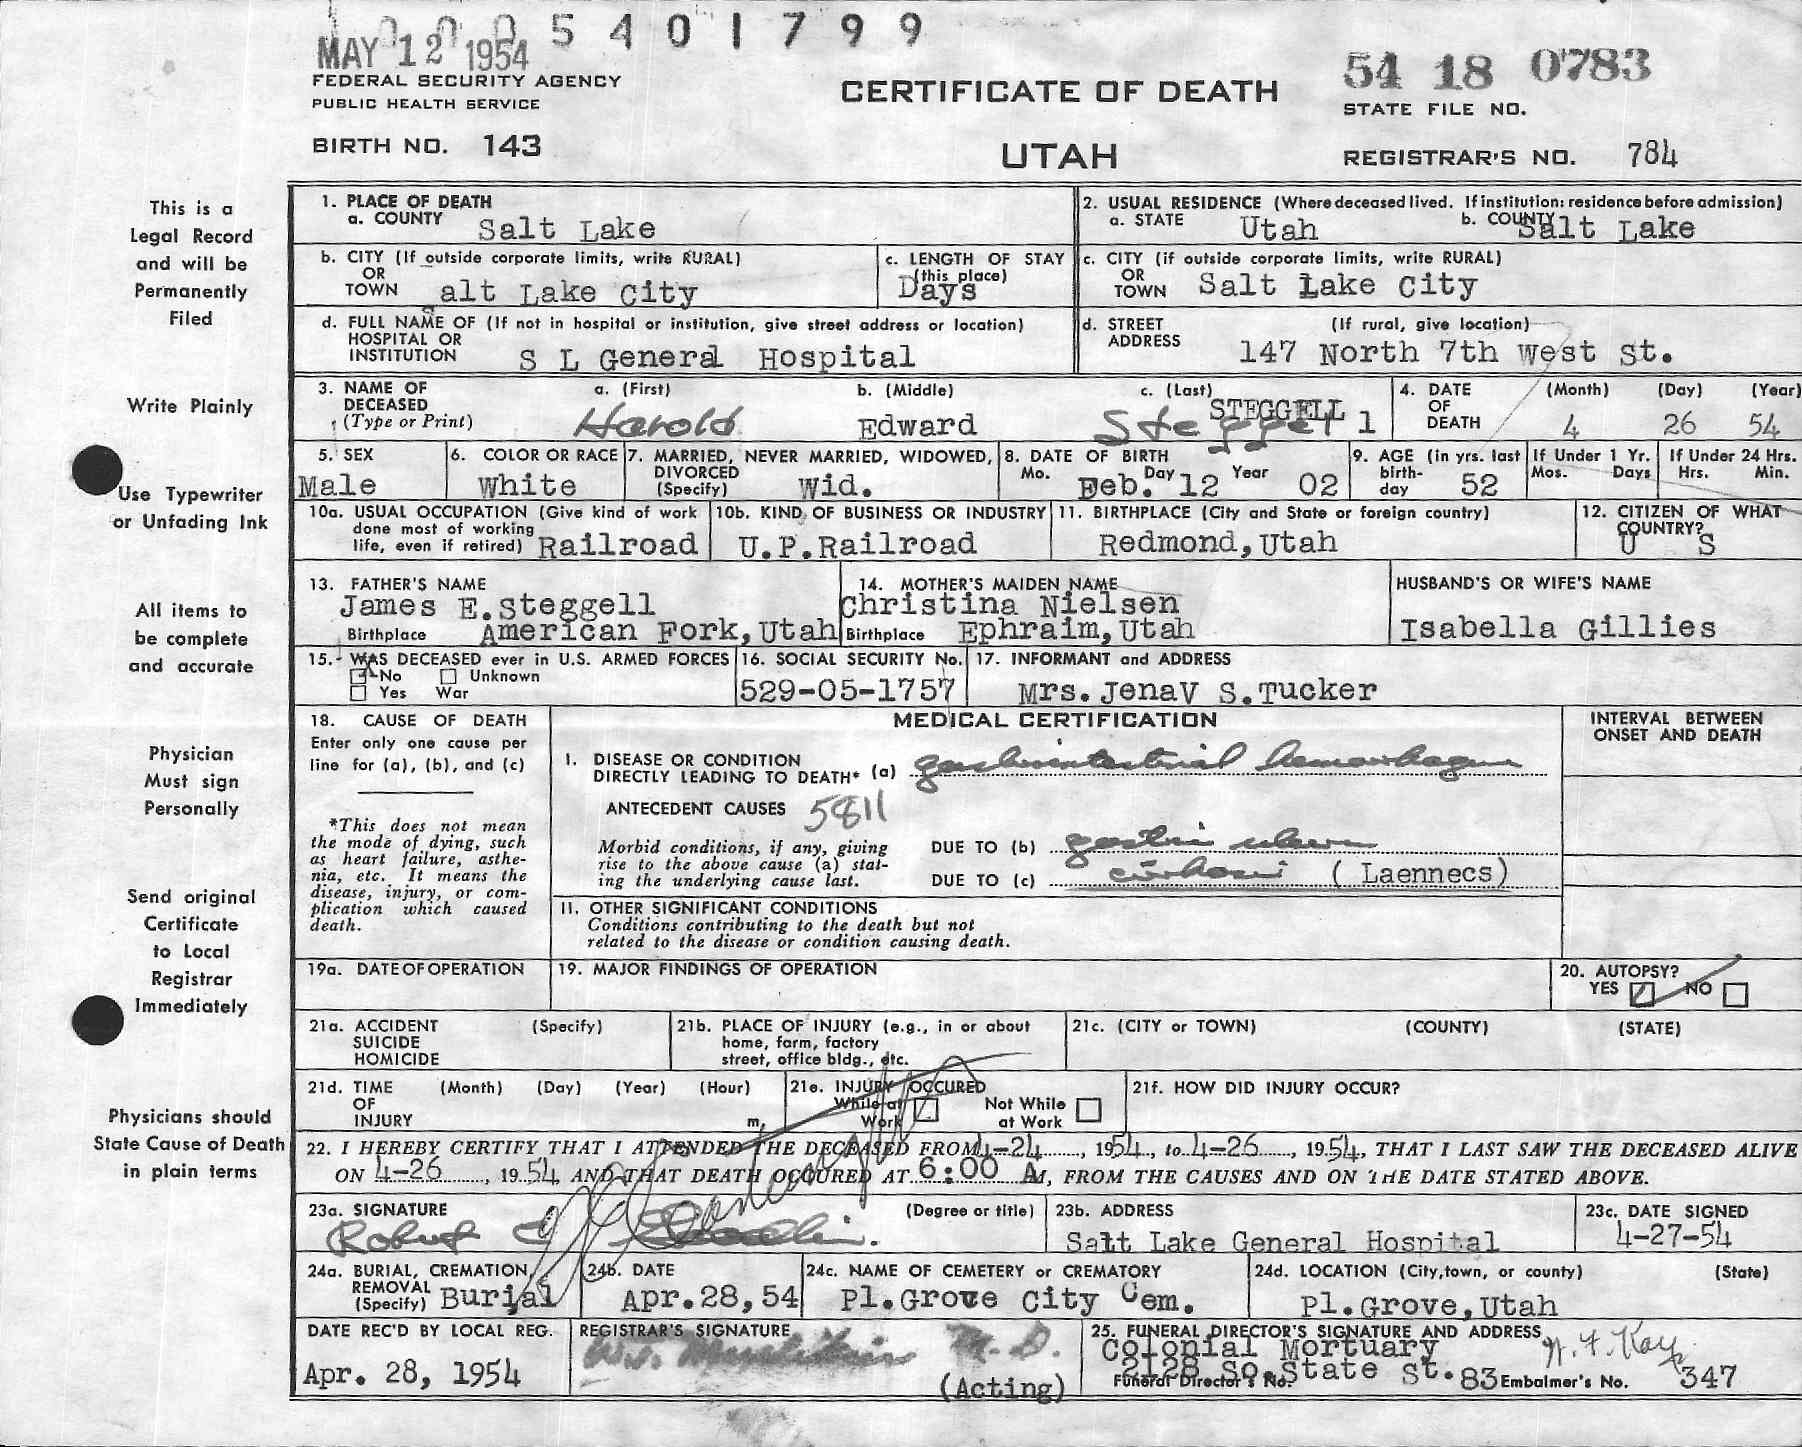 0005401799
MAY 12 1954
54 18 0783
FEDERAL SECURITY AGENCY
PUBLIC HEALTH SERVICE
CERTIFICATE OF DEATH
STATE FILE NO.
BIRTH NO. 143
UTAH
REGISTRAR'S NO. 784
This is a
Legal Record
and will be
Permanently
Filed
Write Plainly
Use Typewriter
or Unfading Ink
All items to
be complete
and accurate
Physician
Must sign
Personally
Send original
Certificate
to Local
Registrar
Immediately
Physicians should
State Cause of Death
in plain terms
1. PLACE OF DEATH
a. COUNTY Salt Lake
2. USUAL RESIDENCE (Where deceased lived. If institution: residence before admission)
a. STATE Utah b. COUNTY Salt Lake
b. CITY (If outside corporate limits, write RURAL)
OR
TOWN Salt Lake City
c. LENGTH OF STAY
(this place)
Days
c. CITY (if outside corporate limits, write RURAL)
OR
TOWN Salt Lake City
d. FULL NAME OF (If not in hospital or institution, give street address or location)
HOSPITAL OR
INSTITUTION S L General Hospital
d. STREET (If rural, give location)
ADDRESS 147 North 7th West St.
3. NAME OF a. (First) b. (Middle) c. (Last)
DECEASED
(Type or Print) Harold Edward Steggell
STEGGELL
4. DATE (Month) (Day) (Year)
OF
DEATH 4 26 54
5. SEX
Male
6. COLOR OR RACE
White
7. MARRIED, NEVER MARRIED, WIDOWED,
DIVORCED
(Specify) Wid.
8. DATE OF BIRTH
Mo. Day Year
Feb. 12 02
9. AGE (in yrs. last
birth-
day 52
If Under 1 Yr.
Mos. Days
If Under 24 Hrs.
Hrs. Min.
10a. USUAL OCCUPATION (Give kind of work
done most of working
life, even if retired) Railroad
10b. KIND OF BUSINESS OR INDUSTRY
U.P.Railroad
11. BIRTHPLACE (City and State or foreign country)
Redmond,Utah
12. CITIZEN OF WHAT
COUNTRY?
U S
13. FATHER'S NAME
James E.Steggell
Birthplace American Fork,Utah
14. MOTHER'S MAIDEN NAME
Christina Nielsen
Birthplace Ephraim,Utah
HUSBAND'S OR WIFE'S NAME
Isabella Gillies
15. WAS DECEASED ever in U.S. ARMED FORCES
No Unknown
Yes War
16. SOCIAL SECURITY No.
529-05-1757
17. INFORMANT and ADDRESS
Mrs.JenaV S.Tucker
18. CAUSE OF DEATH
Enter only one cause per
line for (a), (b), and (c)
*This does not mean
the mode of dying, such
as heart failure, asthe-
nia, etc. It means the
disease, injury, or com-
plication which caused
death.
MEDICAL CERTIFICATION
INTERVAL BETWEEN
ONSET AND DEATH
I. DISEASE OR CONDITION
DIRECTLY LEADING TO DEATH* (a) gastrointestinal hemorrhage
ANTECEDENT CAUSES 5811
Morbid conditions, if any, giving
rise to the above cause (a) stat-
ing the underlying cause last.
DUE TO (b) gastric ulcer
DUE TO (c) cirrhosis (Laennecs)
II. OTHER SIGNIFICANT CONDITIONS
Conditions contributing to the death but not
related to the disease or condition causing death.
19a. DATE OF OPERATION
19. MAJOR FINDINGS OF OPERATION
20. AUTOPSY?
YES NO
21a. ACCIDENT (Specify)
SUICIDE
HOMICIDE
21b. PLACE OF INJURY (e.g., in or about
home, farm, factory
street, office bldg., etc.
21c. (CITY or TOWN) (COUNTY) (STATE)
21d. TIME (Month) (Day) (Year) (Hour)
OF
INJURY m,
21e. INJURY OCCURED
While at
Work
Not While
at Work
21f. HOW DID INJURY OCCUR?
22. I HEREBY CERTIFY THAT I ATTENDED THE DECEASED FROM 4-24, 1954, to 4-26, 1954, THAT I LAST SAW THE DECEASED ALIVE
ON 4-26, 1954, AND THAT DEATH OCCURED AT 6:00 AM, FROM THE CAUSES AND ON THE DATE STATED ABOVE.
23a. SIGNATURE (Degree or title)
Robert
23b. ADDRESS
Salt Lake General Hospital
23c. DATE SIGNED
4-27-54
24a. BURIAL, CREMATION,
REMOVAL
(Specify) Burial
24b. DATE
Apr.28,54
24c. NAME OF CEMETERY or CREMATORY
Pl.Grove City Cem.
24d. LOCATION (City,town, or county) (State)
Pl.Grove,Utah
DATE REC'D BY LOCAL REG.
Apr. 28, 1954
REGISTRAR'S SIGNATURE
M.D.
(Acting)
25. FUNERAL DIRECTOR'S SIGNATURE AND ADDRESS
Colonial Mortuary
W. F. Kay
2128 So.State St.
Funeral Director's No. 83 Embalmer's No. 347